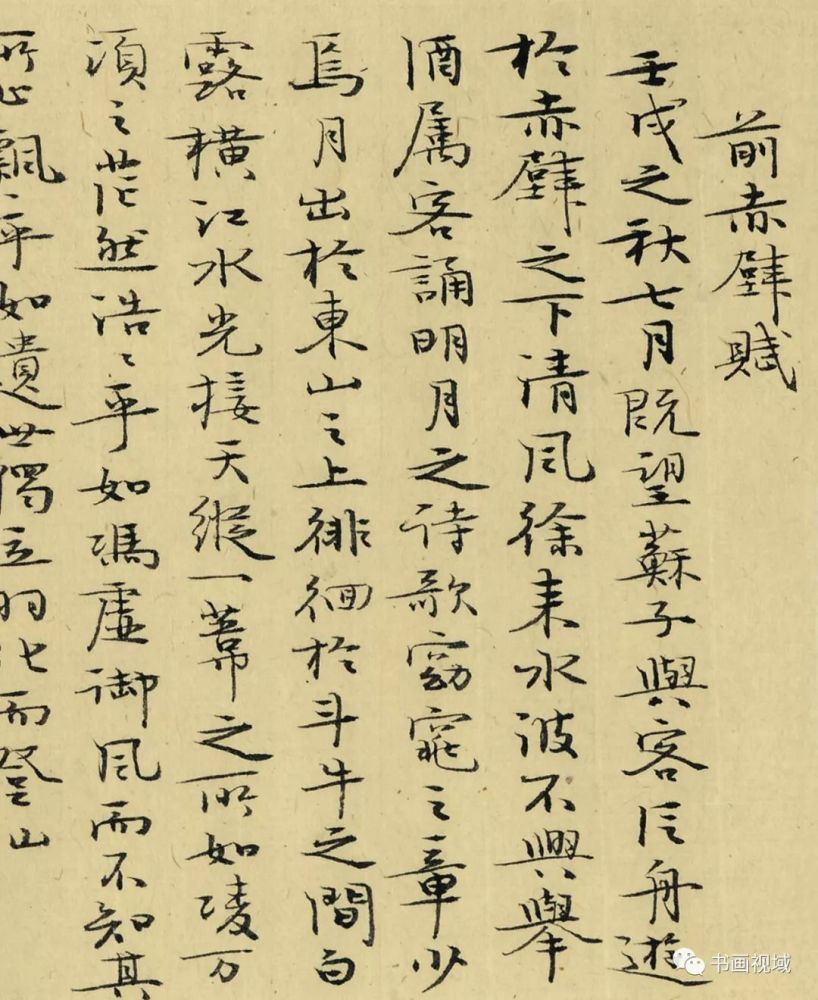 前赤壁賦
壬戌之秋七月既望蘇子與客泛舟遊
於赤壁之下清風徐来水波不興舉
酒属客誦明月之诗歌窈窕之章少
焉月出於東山之上徘徊於斗牛之間白
露橫江水光接天縱一葦之所如凌万
頃之茫然浩〻乎如馮虛御風而不知其
所止飄〻乎如遺世獨立羽化而登仙
书画视域